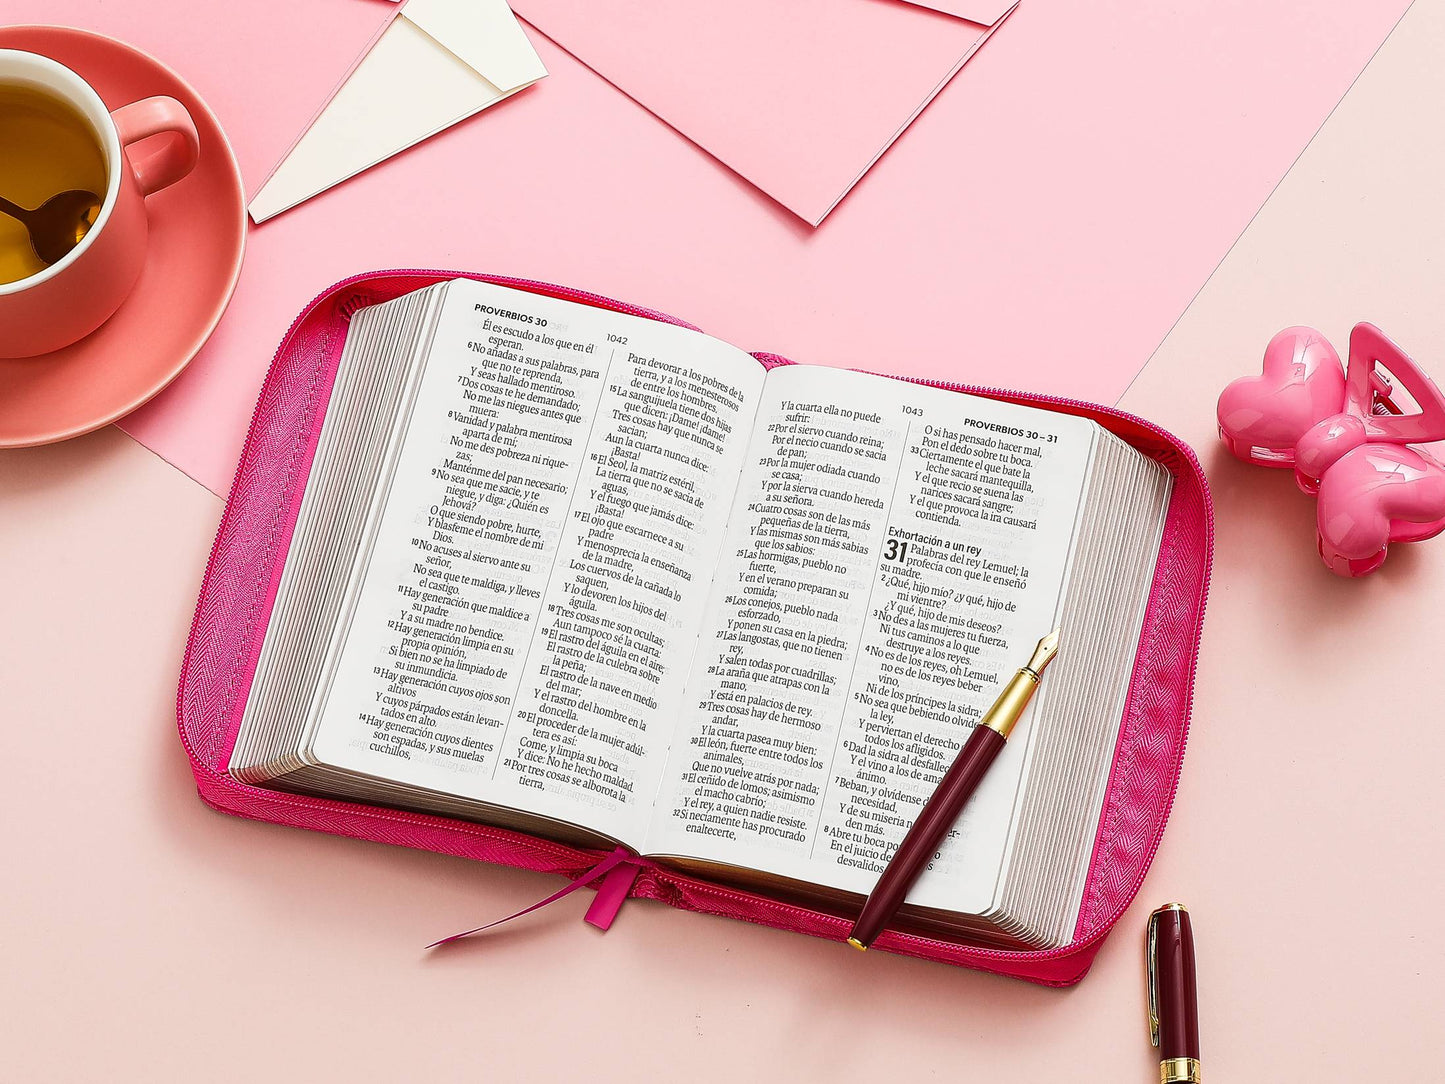 PROVERBIOS 30
1042
Él es escudo a los que en él
esperan.
6 No añadas a sus palabras, para
que no te reprenda,
Y seas hallado mentiroso.
7 Dos cosas te he demandado;
No me las niegues antes que
muera:
8 Vanidad y palabra mentirosa
aparta de mí;
No me des pobreza ni rique-
zas;
Manténme del pan necesario;
9 No sea que me sacie, y te
niegue, y diga: ¿Quién es
Jehová?
O que siendo pobre, hurte,
Y blasfeme el nombre de mi
Dios.
10 No acuses al siervo ante su
señor,
No sea que te maldiga, y lleves
el castigo.
11 Hay generación que maldice a
su padre
Y a su madre no bendice.
12 Hay generación limpia en su
propia opinión,
Si bien no se ha limpiado de
su inmundicia.
13 Hay generación cuyos ojos son
altivos
Y cuyos párpados están levan-
tados en alto.
14 Hay generación cuyos dientes
son espadas, y sus muelas
cuchillos,
Para devorar a los pobres de la
tierra, y a los menesterosos
de entre los hombres.
15 La sanguijuela tiene dos hijas
que dicen: ¡Dame! ¡dame!
Tres cosas hay que nunca se
sacian;
Aun la cuarta nunca dice:
¡Basta!
16 El Seol, la matriz estéril,
La tierra que no se sacia de
aguas,
Y el fuego que jamás dice:
¡Basta!
17 El ojo que escarnece a su
padre
Y menosprecia la enseñanza
de la madre,
Los cuervos de la cañada lo
saquen,
Y lo devoren los hijos del
águila.
18 Tres cosas me son ocultas;
Aun tampoco sé la cuarta:
19 El rastro del águila en el aire;
El rastro de la culebra sobre
la peña;
El rastro de la nave en medio
del mar;
Y el rastro del hombre en la
doncella.
20 El proceder de la mujer adúl-
tera es así:
Come, y limpia su boca
Y dice: No he hecho maldad.
21 Por tres cosas se alborota la
tierra,
1043
PROVERBIOS 30 – 31
Y la cuarta ella no puede
sufrir:
22 Por el siervo cuando reina;
Por el necio cuando se sacia
de pan;
23 Por la mujer odiada cuando
se casa;
Y por la sierva cuando hereda
a su señora.
24 Cuatro cosas son de las más
pequeñas de la tierra,
Y las mismas son más sabias
que los sabios:
25 Las hormigas, pueblo no
fuerte,
Y en el verano preparan su
comida;
26 Los conejos, pueblo nada
esforzado,
Y ponen su casa en la piedra;
27 Las langostas, que no tienen
rey,
Y salen todas por cuadrillas;
28 La araña que atrapas con la
mano,
Y está en palacios de rey.
29 Tres cosas hay de hermoso
andar,
Y la cuarta pasea muy bien:
30 El león, fuerte entre todos los
animales,
Que no vuelve atrás por nada;
31 El ceñido de lomos; asimismo
el macho cabrío;
Y el rey, a quien nadie resiste.
32 Si neciamente has procurado
enaltecerte,
O si has pensado hacer mal,
Pon el dedo sobre tu boca.
33 Ciertamente el que bate la
leche sacará mantequilla,
Y el que recio se suena las
narices sacará sangre;
Y el que provoca la ira causará
contienda.
Exhortación a un rey
31 Palabras del rey Lemuel; la
profecía con que le enseñó
su madre.
2 ¿Qué, hijo mío? ¿y qué, hijo de
mi vientre?
¿Y qué, hijo de mis deseos?
3 No des a las mujeres tu fuerza,
Ni tus caminos a lo que
destruye a los reyes.
4 No es de los reyes, oh Lemuel,
no es de los reyes beber
vino,
Ni de los príncipes la sidra;
5 No sea que bebiendo olvide
la ley,
Y perviertan el derecho
todos los afligidos.
6 Dad la sidra al desfallec
Y el vino a los de ama
ánimo.
7 Beban, y olvídense d
necesidad,
Y de su miseria no
den más.
8 Abre tu boca po
En el juicio de
desvalidos